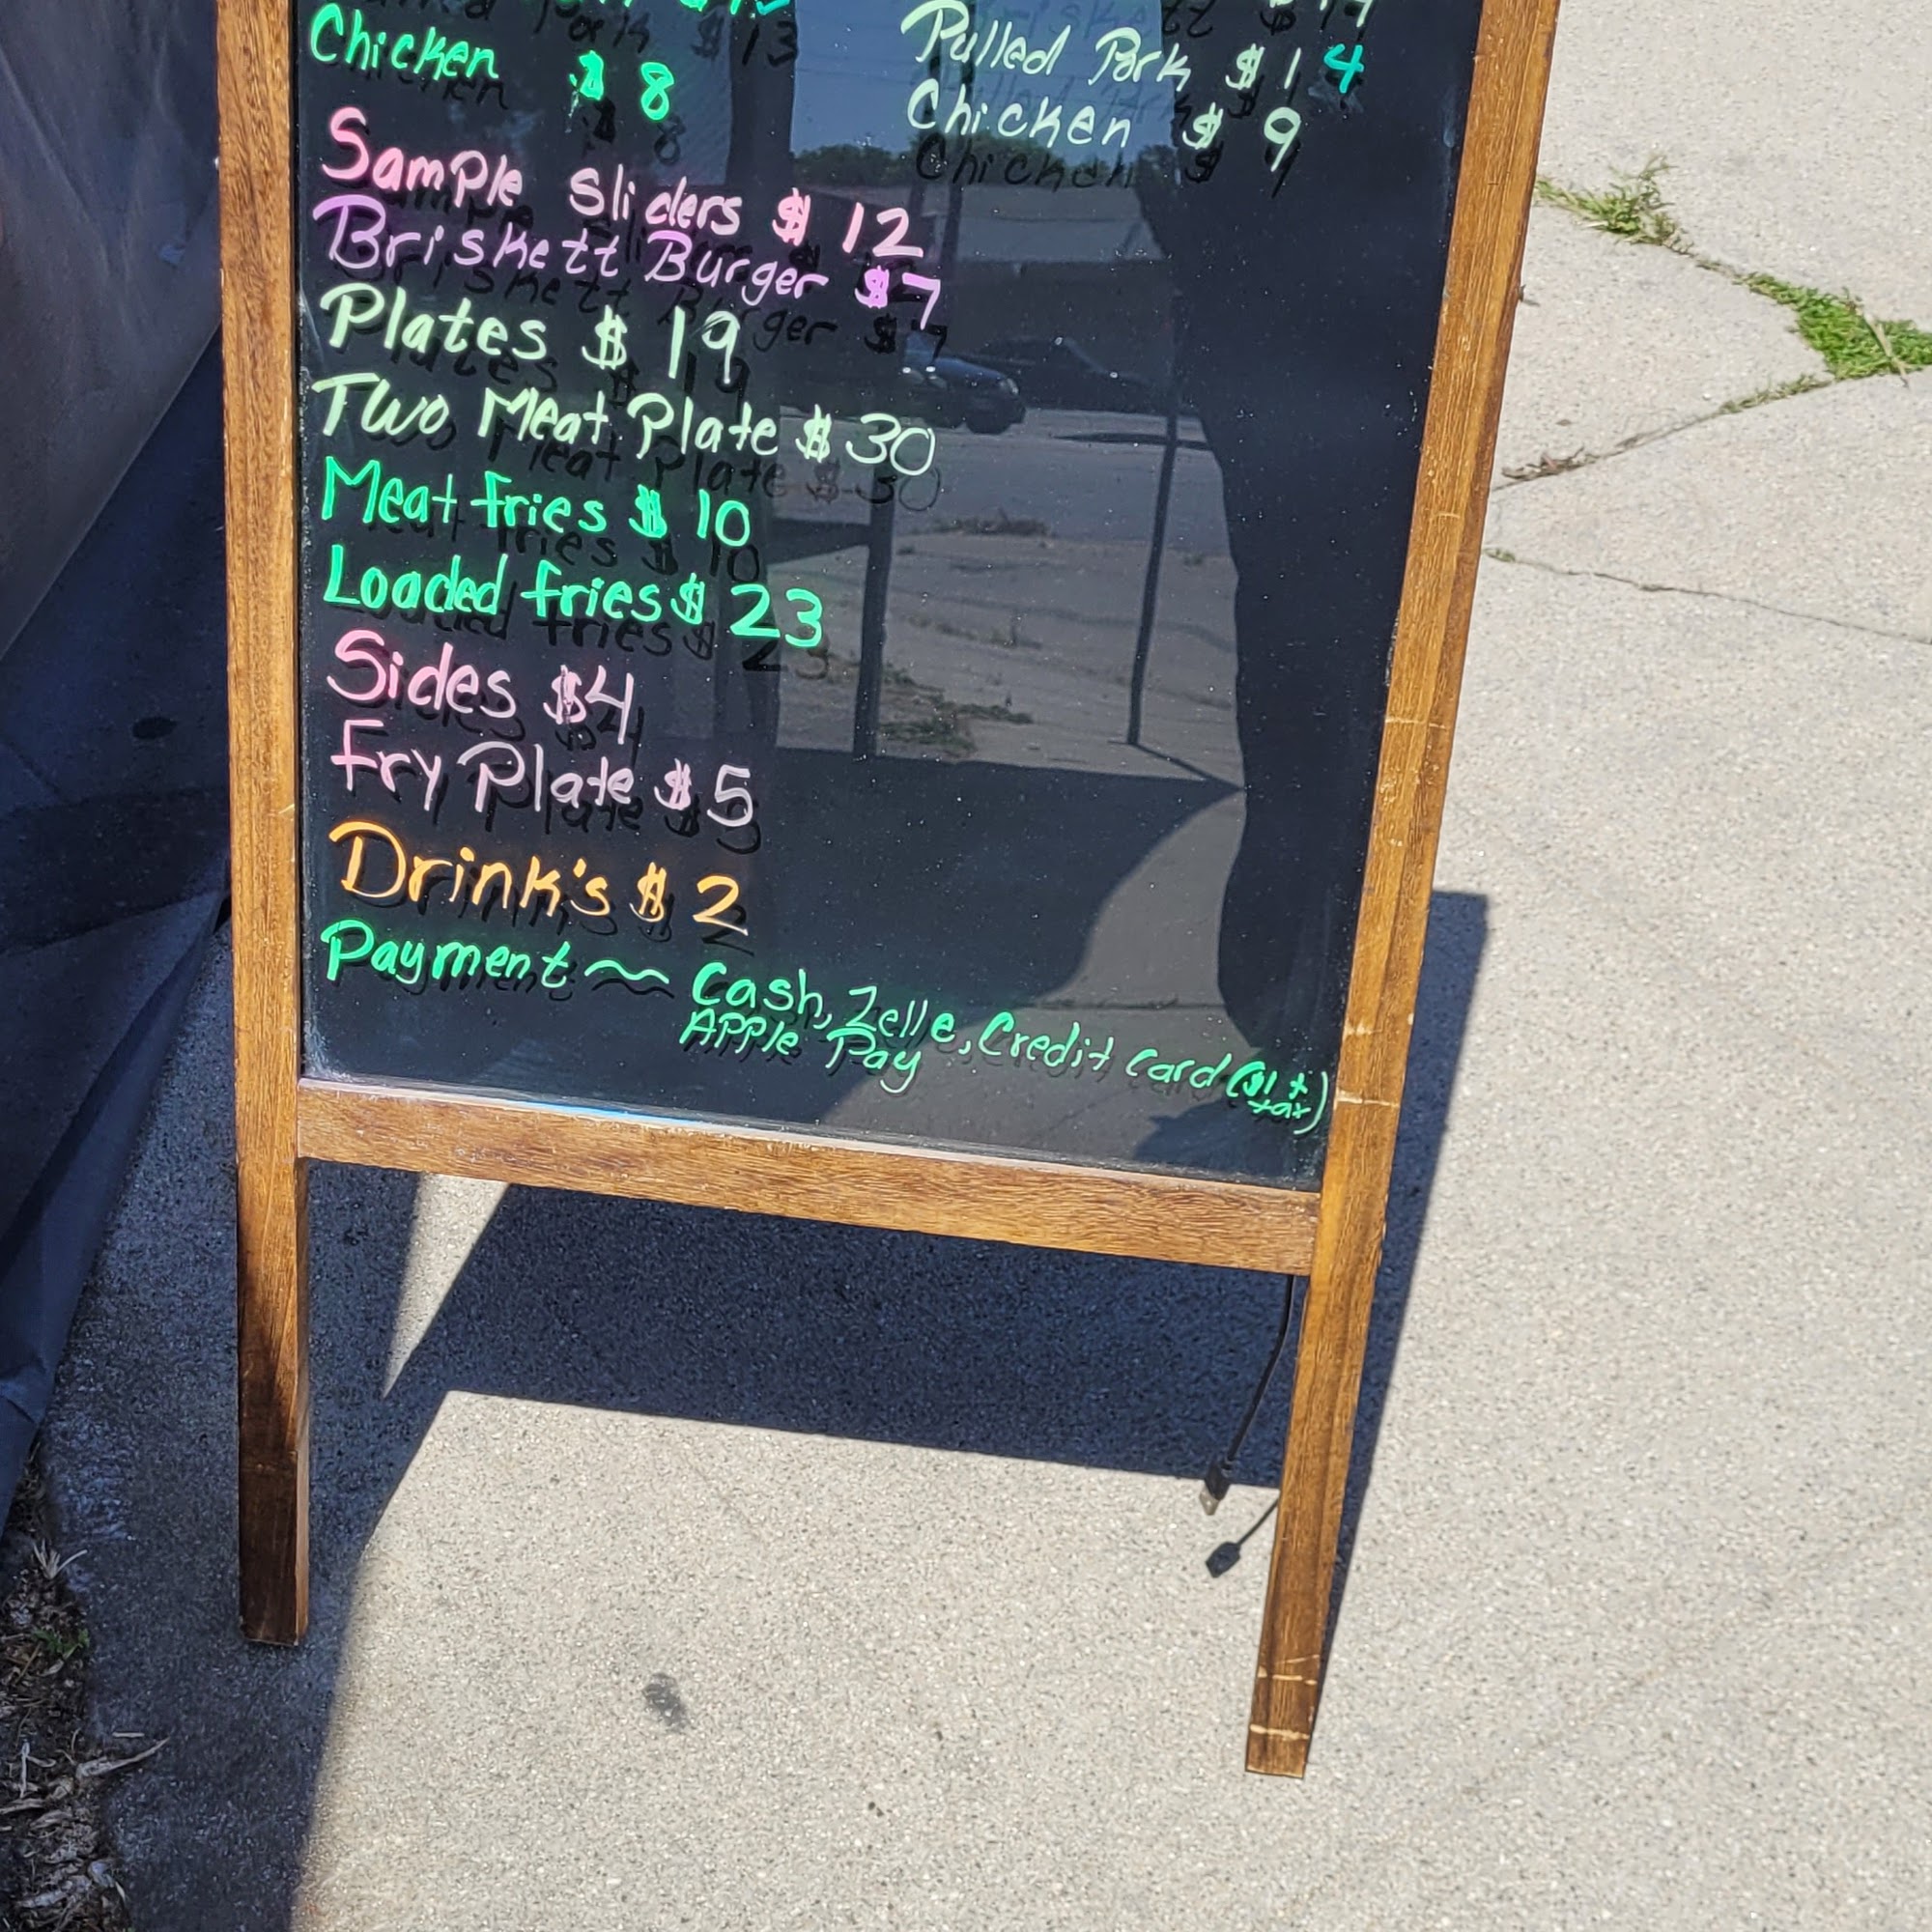 Chicken $ 8
Pulled Pork $ 14
Chicken $ 9
Sample Sliders $ 12
Briskett Burger $7
Plates $ 19
Two Meat Plate $ 30
Meat fries $ 10
Loaded fries $ 23
Sides $4
Fry Plate $ 5
Drink's $ 2
Payment ~~ Cash, Zelle, Credit card ($1 + tax)
APPle Pay